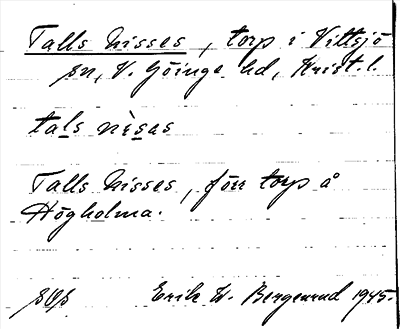 Talls Nisses, torp i Vittsjö
sn, V. Göinge hd, Krist. l.
tals nìsas
Talls Nisses, förr torp å
Högholma.
Erik W. Bergenrud 1945.